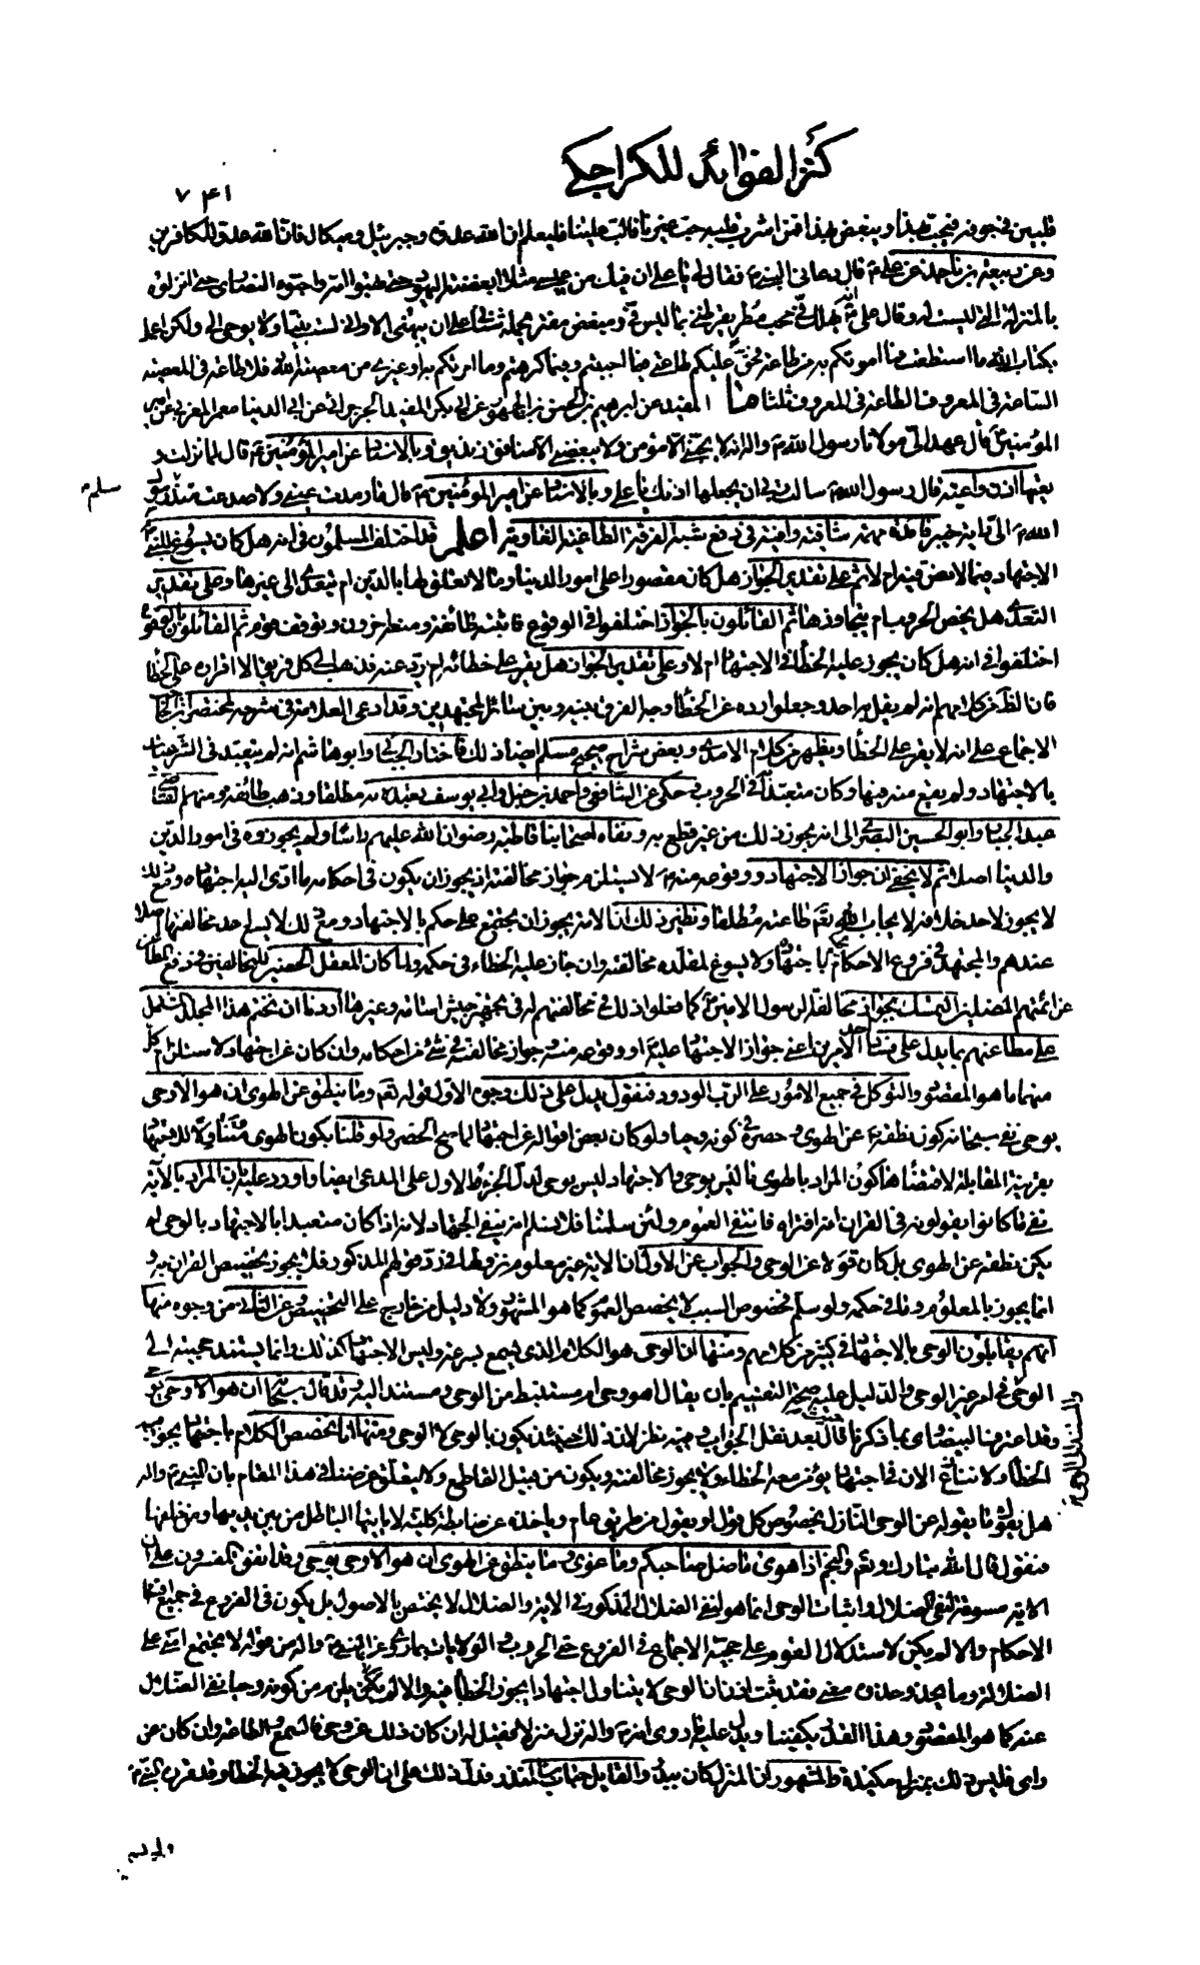 كنز الفوائد للكراجكي
٧٤١
قلبين في جوفه فيحب بهذا ويبغض بهذا فمن اشرب قلبه حب غيرنا علينا فليعلم ان الله عدوه وجبرئيل وميكال فان الله عدو للكافرين
وعن ربيعة بن ناجد عن علي قال دعاني النبي فقال لي يا علي ان فيك من عيسى مثلا ابغضته اليهود حتى بهتوا امه واحبه النصارى حتى انزلوه
بالمنزلة التي ليست له وقال علي يهلك في محب مطر يفرطني بما ليس في ومبغض مفتر يحمله شناني على ان يبهتني الا واني لست نبيا ولا يوحى الي ولكن اعمل
بكتاب الله ما استطعت فما امرتكم به من طاعة فحق عليكم طاعتي فيما احببتم وفيما كرهتم وما امرتكم به او غيري من معصية الله فلا طاعة في المعصية
الطاعة في المعروف الطاعة في المعروف ثلثا المفيد عن ابرهيم بن الحسن بن الجمهور عن ابي بكر المفيد الجرجرائي عن ابي الدنيا معمر المغربي عن امير
المؤمنين قال عهد الي مولانا رسول الله والله انه لا يحبني الا مؤمن ولا يبغضني الا منافق وبالاسناد عن امير المؤمنين قال لما نزلت و
تعيها اذن واعية قال رسول الله سالت ربي ان يجعلها اذنك يا علي وبالاسناد عن امير المؤمنين قال ما رمدت عيني ولا صدعت منذ
الله الي راية خيبر في دفع شبه الفرقة الطاغية الغاوية اعلم قد اختلف المسلمون في انه هل كان يسوغ للنبي
الاجتهاد فيما لا نص فيه ام لا ثم على تقدير الجواز هل كان مقصورا على امور الدنيا وما لا تعلق لها بالدين ام تعدى الى غيرها وعلى تقدير
التعدي هل يخص الحروب ام يتجاوزها ثم القائلون بالجواز اختلفوا في الوقوع فاثبته طائفة ومنعه اخرون وتوقف قوم ثم القائلون بالوقوع
اختلفوا في انه هل كان يجوز عليه الخطا في الاجتهاد ام لا وعلى تقدير الجواز هل يقر على خطائه ام يرد عنه فذهب الى كل فريق الا اقراره على الخطا
فان الظاهر من كلامهم انه لم يقل به احد وجعلوا رده عن الخطا وجه الفرق بينه وبين سائر المجتهدين وقد ادعى العلامة في شرحه لمختصر ابن الحاجب
الاجماع على انه لا يقر على الخطا ويظهر من كلام الامدي وبعض شراح صحيح مسلم ايضا ذلك فاختار الجبائي وابو هاشم انه لم يتعبد في الشرعيات
بالاجتهاد ولم يقع منه فيها وكان متعبدا به في الحروب حكي عن الشافعي واحمد بن حنبل وابي يوسف تعبده به مطلقا وذهب طائفة ومنهم القاضي
عبد الجبار وابو الحسين البصري الى انه يجوز ذلك من غير قطع به ونفاه اصحابنا قاطبة رضوان الله عليهم راسا ولم يجوزوه في امور الدين
والدنيا اصلا ثم لا يخفى ان جواز الاجتهاد ووقوعه منه لا يستلزم جواز مخالفته اذ يجوز ان يكون في احكامه ما ادى اليه اجتهاده ومع ذلك
لا يجوز لاحد خلافه لايجاب الله تعالى طاعته مطلقا ونظير ذلك ان الامة يجوز ان يجتمع على حكم بالاجتهاد ومع ذلك لا يسع احد مخالفتها
عندهم والمجتهد في فروع الاحكام باجتهاد ولا يسوغ لمقلده مخالفته وان جاز عليه الخطاء في حكمه ولما كان المعقل الحصين للمخالفين في دفع المطاعن
عن ائمتهم المضلين التمسك بجواز مخالفة الرسول الامين كما فعلوا ذلك في مخالفتهم له في تجهيز جيش اسامة وغيرها اردنا ان نختم هذا المجلد المشتمل
على مطاعنهم بما يدل على فساد احد الامرين اعني جواز الاجتهاد عليه او وقوعه منه وجواز مخالفته في شئ من احكامه وان كان عن اجتهاد لاستلزام كل
منهما ما هو المقصود والتوكل في جميع الامور على الرب الودود فنقول يدل على ذلك وجوه الاول قوله تعالى وما ينطق عن الهوى ان هو الا وحي
يوحى نفى سبحانه كون نطقه عن الهوى وحصره في كونه وحيا ولو كان بعض اقواله عن اجتهاد لما صح الحصر ولو قلنا بكون الهوى متناولا للاجتهاد
بقرينة المقابلة لاقتضائها كون المراد بالهوى ما ليس بوحي والاجتهاد ليس بوحي لدل الجزء الاول على المدعى ايضا واورد عليه بان المراد بالاية
نفي ما كانوا يقولونه في القران انه افتراه فانتفى العموم ولئن سلمنا فلا نسلم انه ينفي الاجتهاد لانه اذا كان متعبدا بالاجتهاد بالوحي لم
يكن نطقه عن الهوى بل كان قولا عن الوحي والجواب عن الاول ان الاية غير معلوم نزولها في رد قولهم المذكور فلا يجوز تخصيص القران به و
انما يجوز بالمعلوم وما في حكمه ولو سلم فخصوص السبب لا يخصص العموم كما هو المشهور ولا دليل من خارج على التخصيص وعن الثاني من وجوه منها
انهم يقابلون الوحي بالاجتهاد في كثير من كلامهم ومنها ان الوحي هو الكلام الذي يسمع بسرعة وليس الاجتهاد كذلك وانما يستند حجيته الى
الوحي فهو غير الوحي والدليل عليه صحة التقسيم بان يقال اهو وحي ام مستنبط من الوحي ومستند اليه وقد قال سبحانه ان هو الا وحي
وقد اعترضنا البيضاوي بما ذكرنا قال بعد نقل الجواب وفيه نظر لان ذلك حينئذ يكون بالوحي لا الوحي ومنها انا نخصص الكلام باجتهاد يجوز فيه
الخطا ولا نتنازع الان في اجتهاد يؤمن معه الخطاء ولا يجوز مخالفته ويكون من قبيل القاطع ولا يتعلق غرضنا في هذا المقام بان النبي واله
هل يقول ما يقوله عن الوحي النازل بخصوص كل قول او يقول من طريق عام وياخذه عن ضابطة كلية لا ياتيها الباطل من بين يديها ومن خلفها
فنقول قال الله تبارك وتعالى والنجم اذا هوى ما ضل صاحبكم وما غوى وما ينطق عن الهوى ان هو الا وحي يوحى وقد اتفق المفسرون على ان
الاية مسوقة لنفي الضلال واثبات الوحي انما هو لنفي الضلال المذكور في الاية والضلال لا يختص بالاصول بل يكون في الفروع في جميع
الاحكام والا لم يكن لاستدلال القوم على حجية الاجماع في الفروع حتى الحروب والولايات بما روي عن النبي واله من قوله لا يجتمع امتي على
الضلال لزوما معنى فقد ثبت اذن ان الوحي لا يتناول اجتهادا يجوز الخطا فيه والا لم يكن يلزم من كونه وحيا نفي الضلال
عنه كما هو المقصود وهذا القدر يكفينا ويدل عليه ما روي انه واله نزل منزلا فقيل له ان كان ذلك عن وحي فالسمع والطاعة وان كان عن
راي فليس ذلك بمنزل مكيدة والمشهور ان المنزل كان ببدر والقايل حباب بن المنذر فدل ذلك على ان الوحي لا يجوز فيه الخطا وقد قرره النبي